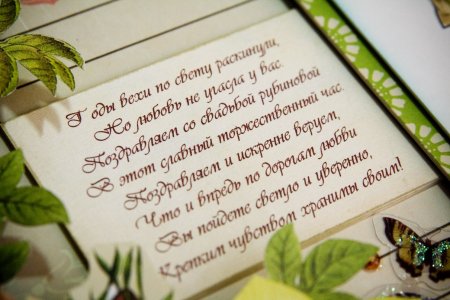 Годы вехи по свету раскинули,
Но любовь не угасла у вас.
Поздравляем со свадьбой рубиновой
В этот славный торжественный час.
Поздравляем и искренне веруем,
Что и впредь по дорогам любви
Вы пойдете светло и уверенно,
Крепким чувством хранимы своим!